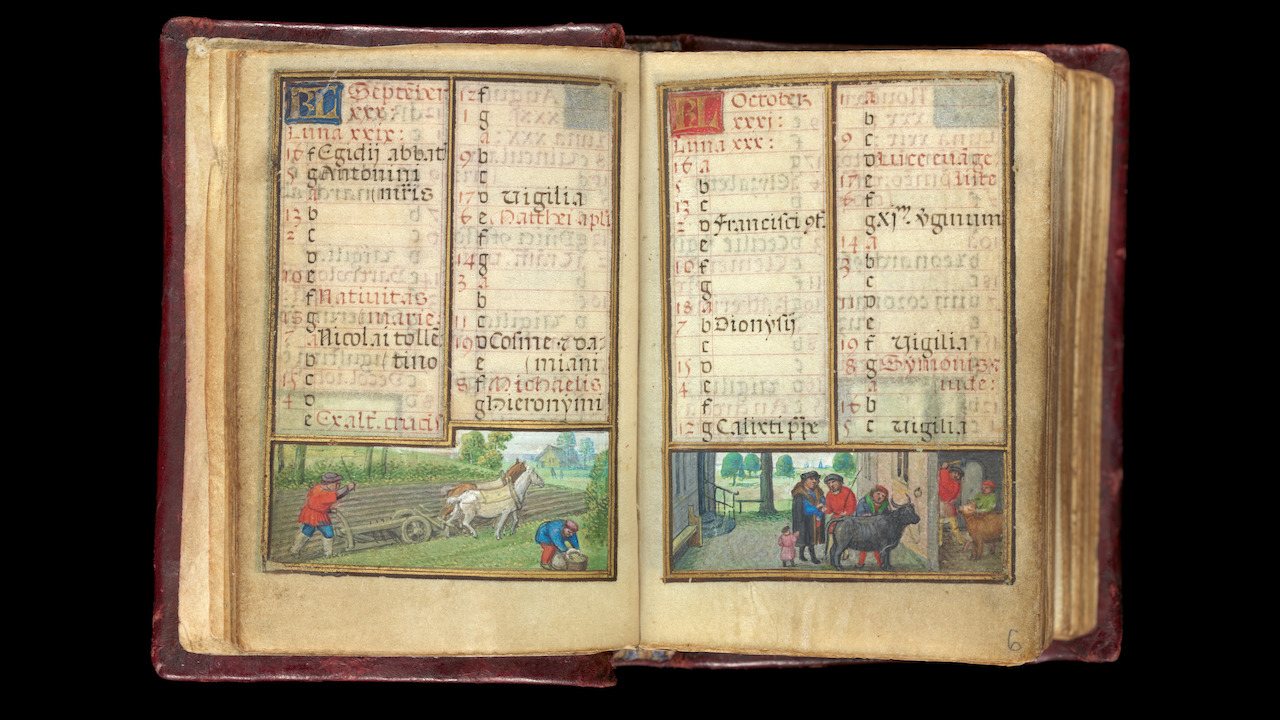 KL Septēber
xxx
Luna xxix:
16 f Egidij abbat
5 g Antonini
a m̄ris
13 b
2 c
d
10 e
f Nativitas
g marie
7 a Nicolai tolle
b tino
15 c
4 d
e Exalt. crucis
12 f
1 g
a
9 b
c
17 d Vigilia
6 e Matthei apli
f
14 g
3 a
b
11 c
19 d Cosme ⁊ da
e miani
8 f Michaelis
g Hieronymi
KL October
xxxj
Luna xxx:
16 a
5 b
13 c
2 d Francisci 9f.
e
10 f
g
18 a
7 b Dionysij
c
15 d
4 e
f
12 g Calixti
a
b
9 c
d Luce evāge
17 e liste
6 f
g Xjᵐ. v̄ginum
14 a
3 b
c
d
e
19 f Vigilia
8 g Symonis ⁊
a iude:
16 b
5 c Vigilia
6